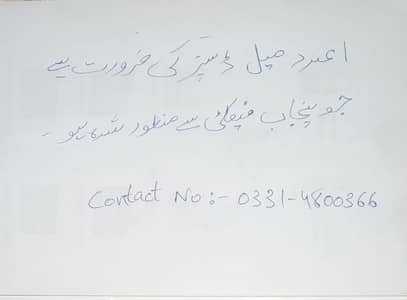 1 عدد میل ڈسپنسر کی ضرورت ہے
جو پنجاب فیکلٹی سے منظور شدہ ہو۔
Contact No:- 0331-4800366